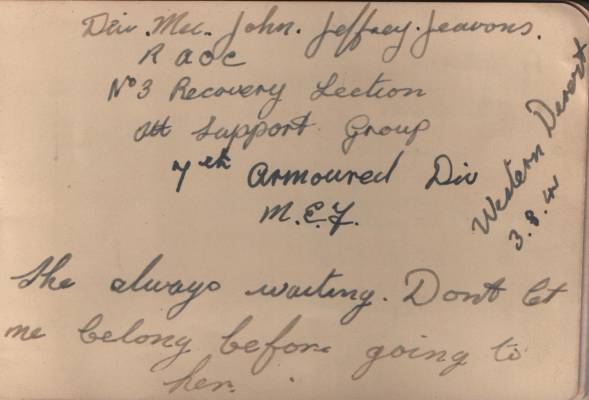 Div. Mec. John. Jeffrey. Jeavons.
R AOC
No 3 Recovery Section
Att Support Group
7th Armoured Div
M.E.F.
Western Desert
3.8.41
She always waiting. Dont let
me belong before going to
her.